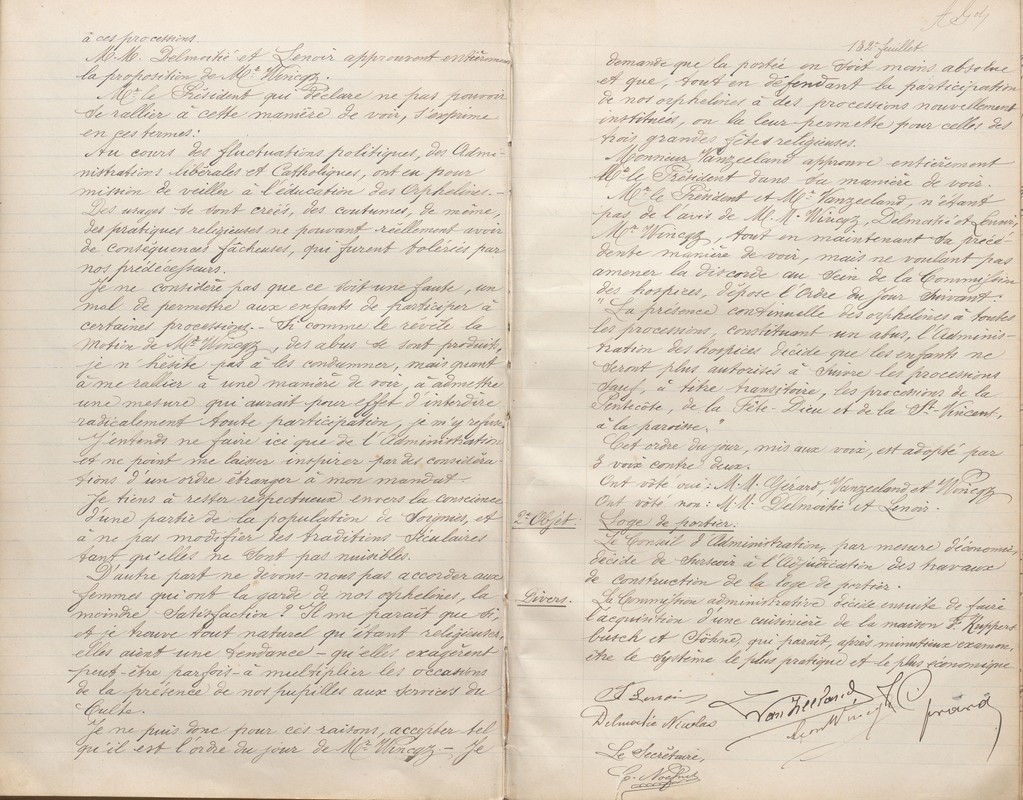 à ces processions.
M.M. Delmoitié et Lenoir approuvent entièrement
la proposition de Mr Wincqz.
Mr le Président qui déclare ne pas pouvoir
se rallier à cette manière de voir, s'exprime
en ces termes:
Au cours des fluctuations politiques, des Admi-
nistrations libérales et Catholiques, ont eu pour
mission de veiller à l'éducation des Orphelines.-
Des usages se sont créés, des coutumes, de même,
des pratiques religieuses ne pouvant réellement avoir
de conséquences fâcheuses, qui furent tolérées par
nos prédécesseurs.
Je ne considère pas que ce soit une faute, un
mal de permettre aux enfants de participer à
certaines processions.- Si comme le revèle la
motion de Mr Wincqz, des abus se sont produits,
je n'hésite pas à les condamner, mais quant
à me rallier à une manière de voir, à admettre
une mesure qui aurait pour effet d'interdire
radicalement toute participation, je m'y refuse.
J'entends ne faire ici que de l'Administration
et ne point me laisser inspirer par des considéra-
tions d'un ordre étranger à mon mandat.-
Je tiens à rester respectueux envers la conscience
d'une partie de la population de Soignies, et
à ne pas modifier des traditions séculaires
tant qu'elles ne sont pas nuisibles.
D'autre part ne devons-nous pas accorder aux
femmes qui ont la garde de nos orphelines, la
moindre satisfaction? Il me paraît que si,
et je trouve tout naturel qu'étant religieuses,
elles aient une tendance - qu'elles exagèrent
peut-être parfois - à multiplier les occasions
de la présence de nos pupilles aux services du
Culte.
Je ne puis donc pour ces raisons, accepter tel
qu'il est l'ordre du jour de Mr Wincqz.- Je
juillet
demande que la portée en soit moins absolue
et que, tout en défendant la participation
de nos orphelines à des processions nouvellement
instituées, on la leur permette pour celles des
trois grandes fêtes religieuses.
Monsieur Vanzeeland approuve entièrement
Mr le Président dans sa manière de voir.
Mr le Président et Mr Vanzeeland, n'étant
pas de l'avis de M.M. Wincqz, Delmoitié et Lenoir,
Mr Wincqz, tout en maintenant sa précé-
dente manière de voir, mais ne voulant pas
amener la discorde au sein de la Commission
des hospices, dépose l'Ordre du jour suivant:
"La présence continuelle des orphelines à toutes
les processions, constituant un abus, l'Adminis-
tration des hospices décide que les enfants ne
seront plus autorisés à suivre les processions
sauf, à titre transitoire, les processions de la
Pentecôte, de la Fête-Dieu et de la St Vincent,
à la paroisse."
Cet ordre du jour, mis aux voix, est adopté par
3 voix contre deux.
Ont voté oui: M.M. Gerard, Vanzeeland et Wincqz
Ont voté non: M.M. Delmoitié et Lenoir.
2e Objet: Loge de portier.
Le Conseil d'Administration, par mesure d'économie,
décide de surseoir à l'Adjudication des travaux
de construction de la loge de portier.
Divers. La Commission administrative décide ensuite de faire
l'acquisition d'une cuisinière de la maison F. Kuppers
busch et Söhne, qui paraît, après minutieux examen,
être le système le plus pratique et le plus économique
Lenoir
Delmoitié Nicolas
Van Zeeland
Léon Wincqz
Gérard
Le Secrétaire,